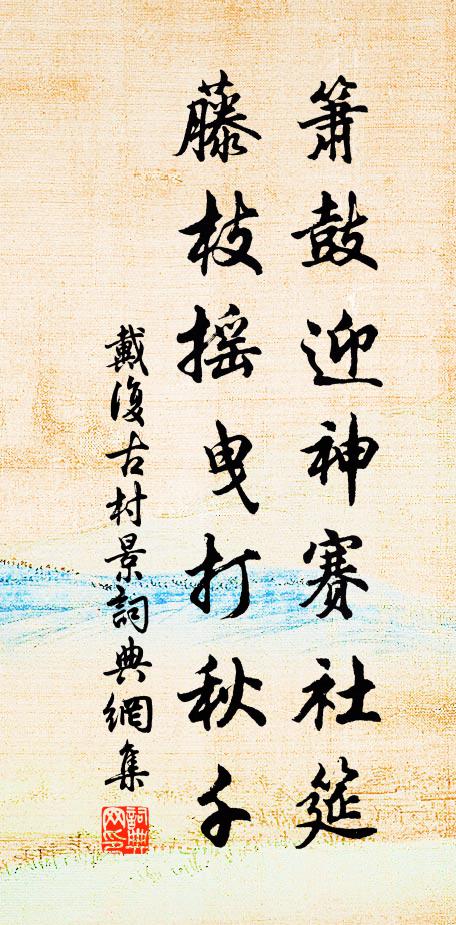 簫鼓迎神賽社筵
藤枝摇曳打秋千
戴復古村景詞典網集
詞典网印